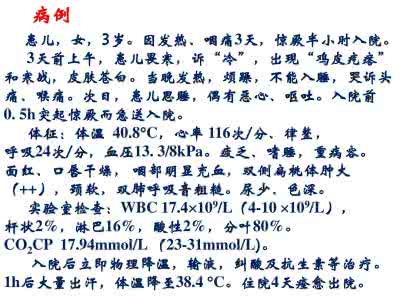 病例
患儿，女，3岁。因发热、咽痛3天，惊厥半小时入院。
3天前上午，患儿畏寒，诉“冷”，出现“鸡皮疙瘩”
和寒战，皮肤苍白。当晚发热，烦躁，不能入睡，哭诉头
痛、喉痛。次日，患儿思睡，偶有恶心、呕吐。入院前
0.5h突起惊厥而急送入院。
体征：体温 40.8°C，心率 116次/分、律整，
呼吸24次/分，血压13.3/8kPa。疲乏、嗜睡，重病容。
面红、口唇干燥，咽部明显充血，双侧扁桃体肿大
（++），颈软，双肺呼吸音粗糙。尿少、色深。
实验室检查：WBC 17.4×10⁹/L（4-10 ×10⁹/L），
杆状2%，淋巴16%，酸性2%，分叶80%。
CO₂CP 17.94mmol/L （23-31mmol/L)。
入院后立即物理降温，输液，纠酸及抗生素等治疗。
1h后大量出汗，体温降至38.4 °C。住院4天痊愈出院。